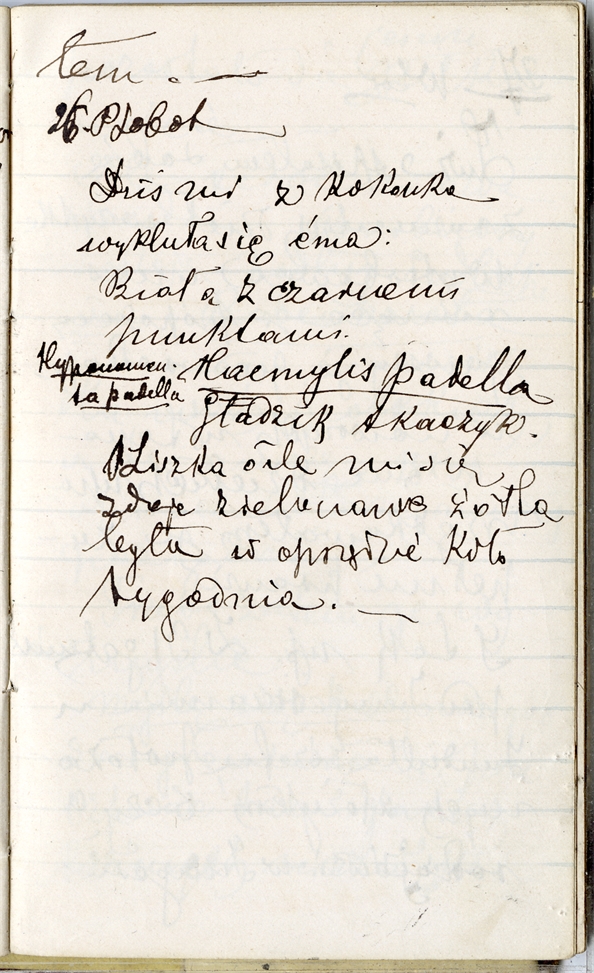 tem. —
26. P Sobot
Dziś mi z Kokonka
wykluła się ćma:
Biała z czarnemi
punktami.
Hyponomeu-
ta padella
Haemylis padella
gładzik tkaczyk.
Liszka o ile mi się
zdaje zielonawo żółta
była w oprzędzie koło
tygodnia. —